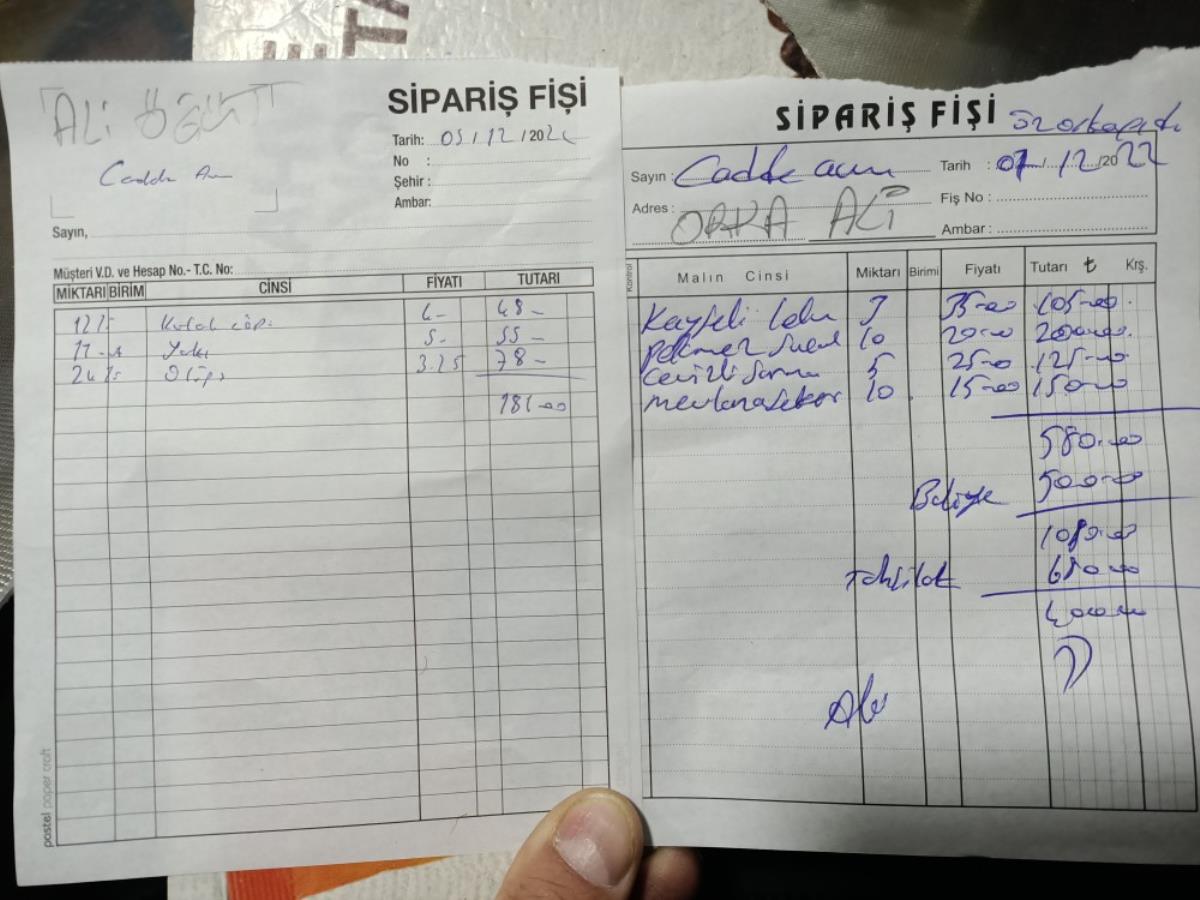 ALİ ÖĞÜT
Cadde
SİPARİŞ FİŞİ
Tarih: 05/12/202
No :
Şehir :
Ambar:
Sayın,
Müşteri V.D. ve Hesap No.- T.C. No:
MİKTARI BİRİM CİNSİ FİYATI TUTARI
12 Kulak çöpü 4- 48-
11 5- 55-
24 3.25 78-
181-00
pastel paper craft
SİPARİŞ FİŞİ
Sayın: Cadde Tarih : 07/12/2022
Adres: ORKA ALİ Fiş No :
Ambar :
Kontrol Malın Cinsi Miktarı Birimi Fiyatı Tutarı ₺ Krş.
Kayseli 3 35-00 105-00
10 20-00 200-00
Cevizli Sarma 5 25-00 125-00
mevlana şeker 10 15-00 150-00
580-00
500-00
1080-00
Tahsilat 680-00